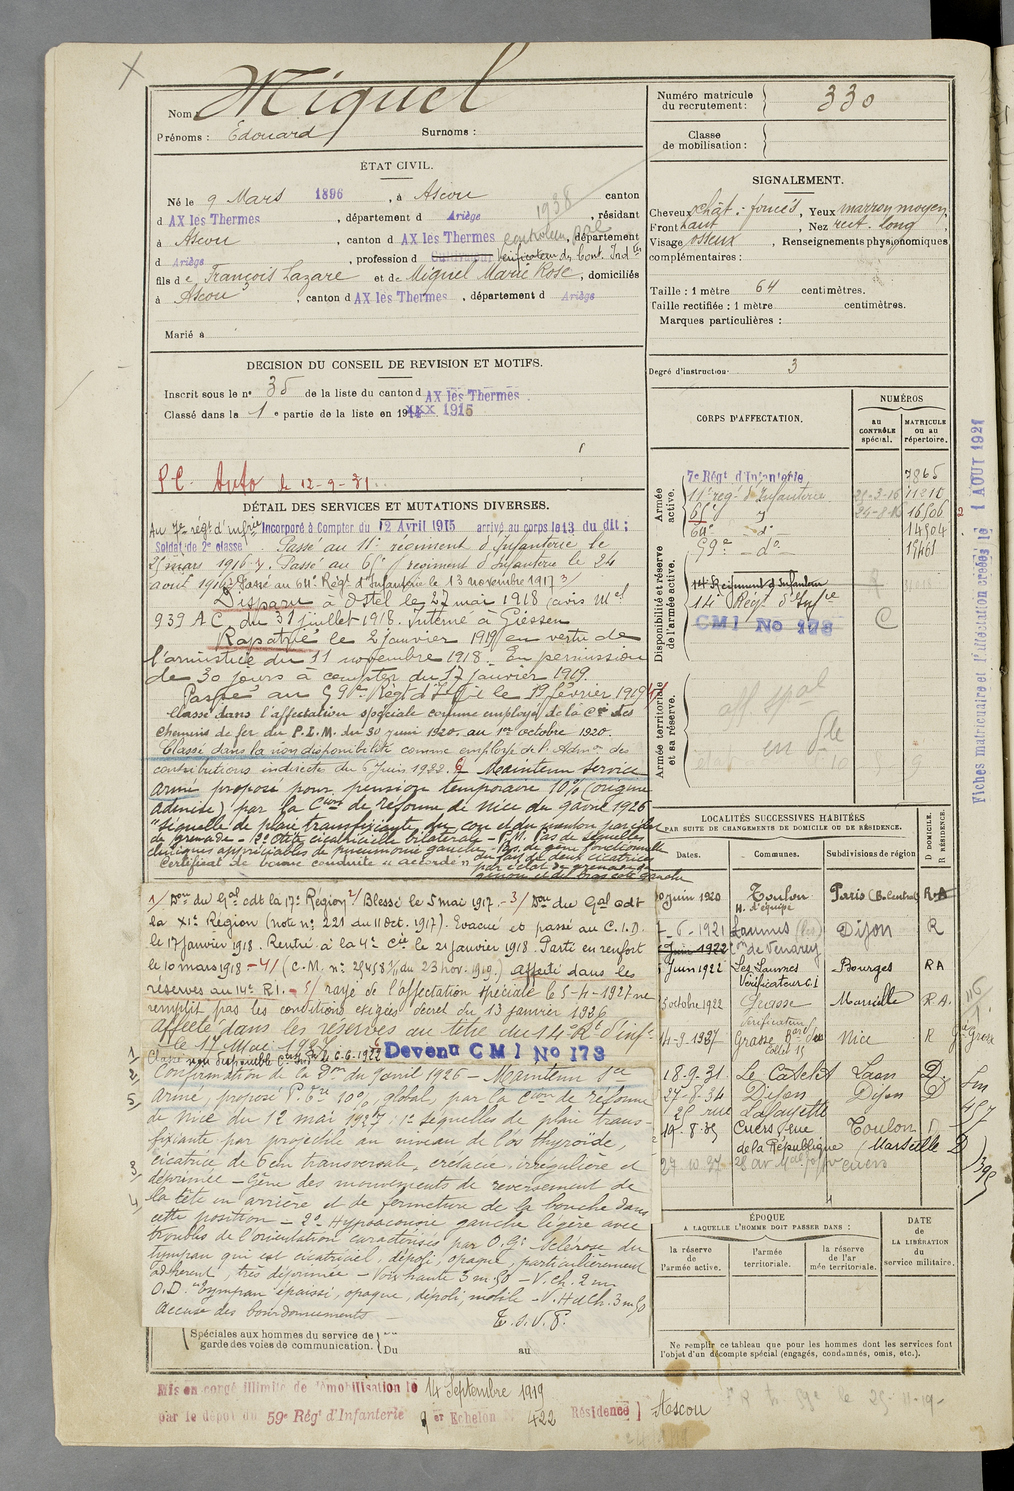 Nom : Miquel
Prénoms : Edouard Surnoms :
ÉTAT CIVIL.
Né le 9 Mars 1896, à Ascou canton
d AX les Thermes, département d Ariège, résidant
à Ascou, canton d AX les Thermes, département
d Ariège, profession d Cultivateur Vérificateur des Cont. Ind tes
1938
fils de François Lazare et de Miquel Marie Rose, domiciliés
à Ascou, canton d AX les Thermes, département d Ariège
Marié à
DECISION DU CONSEIL DE REVISION ET MOTIFS.
Inscrit sous le n° 35 de la liste du canton d AX les Thermes.
Classé dans la 1e partie de la liste en 1915
P.C. Auto le 12-9-31.
DÉTAIL DES SERVICES ET MUTATIONS DIVERSES.
Au 7e régt d'infrie Incorporé à Compter du 12 Avril 1915 arrivé au corps le 13 du dit ;
Soldat de 2e classe. Passé au 11e régiment d'Infanterie le
25 mars 1916. Passé au 65e régiment d'Infanterie le 24
août 1916 2/ Passé au 64e Régt d'Infanterie le 13 novembre 1917 3/
Disparu à Ostel le 27 mai 1918 (avis Mel
939 A C. du 31 juillet 1918. Interné à Giessen
Rapatrié le 2 janvier 1919 en vertu de
l'armistice du 11 novembre 1918. En permission
de 30 jours à compter du 17 janvier 1919.
Passé au 59me Régt d'Inf. le 19 février 1919
Classé dans l'affectation spéciale comme employé de la Cie des
chemins de fer du P.L.M. du 30 juin 1920. au 1er octobre 1920.
Classé dans la non disponibilité comme employé de l'Admon des
contributions indirectes du 5 Juin 1922. Maintenu service
armé proposé pour pension temporaire 10% (origine
admise) par la Cion de réforme de Nice du 9 avril 1926
"séquelle de plaie transfixiante du cou et du menton par éclat
de grenade - 2° Otite cicatricielle bilatérale - P.M. Pas de séquelles
cliniques appréciables de pneumonie gauche - Pas de gêne fonctionnelle
du fait de deux cicatrices
Certificat de bonne conduite "accordé"
par éclat de grenade
1/ Don du Gal cdt la 17e Région 2/ Blessé le 5 mai 1917 - 3/ Don du Gal cdt
la XIe Région (note n° 221 du 11 Oct. 1917). Evacué et passé au C.I.D.
le 17 janvier 1918. Rentré à la 4e Cie le 21 janvier 1918. Parti en renfort
le 10 mars 1918 - 4/ (C.M. n° 25458 du 23 nov. 1919.) affecté dans les
réserves au 14e R.I. - 5/ rayé de l'affectation spéciale le 5-4-1927 ne
remplit pas les conditions exigées décret du 13 janvier 1926
affecté dans les réserves au titre du 14e Rt d'inf.
le 17 Mai 1927
Classé non disponible Devenu CMI No 173
Confirmation de la Don du 9 avril 1926 - Maintenu sce
armé, proposé P. Tre 10% global, par la Cion de réforme
de Nice du 12 mai 1927 : 1° séquelles de plaie trans-
fixiante par projectile au niveau de l'os thyroïde,
cicatrice de 6 cm transversale, crétacée, irrégulière et
déprimée - Gêne des mouvements de renversement de
la tête en arrière et de fermeture de la bouche dans
cette position - 2° Hypoacousie gauche légère avec
troubles de l'orientation caractérisés par O.G. Sclérose du
tympan qui est cicatriciel, dépoli, opaque, particulièrement
adhérent, très déprimée - Voix haute 3 m 50 - V. ch. 2 m
O.D. Tympan épaissi, opaque, dépoli, mobile - V. H et Ch. 3 m 50
Accuse des bourdonnements -
T.S.V.P.
Spéciales aux hommes du service de
garde des voies de communication. Du au
Mis en congé illimité de démobilisation le 14 Septembre 1919
par le dépôt du 59e Régt d'Infanterie 9 er Echelon N° 422 Résidence Ascou
Numéro matricule
du recrutement : 330
Classe
de mobilisation :
SIGNALEMENT.
Cheveux chât : foncés, Yeux marron moyen,
Front haut, Nez rect. long,
Visage osseux, Renseignements physionomiques
complémentaires :
Taille : 1 mètre 64 centimètres.
Taille rectifiée : 1 mètre centimètres.
Marques particulières :
Degré d'instruction 3
CORPS D'AFFECTATION.
NUMÉROS
au
CONTRÔLE
spécial.
MATRICULE
ou au
répertoire.
Armée
active.
7e Régt d'Infanterie 7865
11e regt d'Infanterie 25-3-16 11210
65e " 24-8-16 16506
64e d° 14904
59e d° 19461
Disponibilité et réserve
de l'armée active.
14e Regiment d'Infanterie
14e Régt d'Infie C
CMI No 173
Armée territoriale
et sa réserve.
aff. spal
LOCALITÉS SUCCESSIVES HABITÉES
PAR SUITE DE CHANGEMENTS DE DOMICILE OU DE RÉSIDENCE.
Dates. Communes. Subdivisions de région
D DOMICILE.
R RÉSIDENCE.
10 juin 1920 Toulon Paris (B. Central) R.A
H. d'équipe
7-6-1921 Laumes Dijon R
Juin 1922 Cne de Venarey
5 Juin 1922 Les Laumes Bourges RA
Vérificateur C.I
5 octobre 1922 Grasse Marseille R A.
vérificateur
14-9-1927 Grasse Nice R
18.9.31 Le Catelet Laon D.
27-8-34 Dijon Dijon D
25 rue Lafayette
19-8-35 Cuers rue Toulon D
de la République Marseille D
27 10 37 Cuers
ÉPOQUE
A LAQUELLE L'HOMME DOIT PASSER DANS :
la réserve
de
l'armée active.
l'armée
territoriale.
la réserve
de l'ar
mée territoriale.
DATE
de
LA LIBÉRATION
du
service militaire.
Ne remplir ce tableau que pour les hommes dont les services font
l'objet d'un décompte spécial (engagés, condamnés, omis, etc.).
Fiches matriculaire et l'affectation créées le 1 AOUT 1921